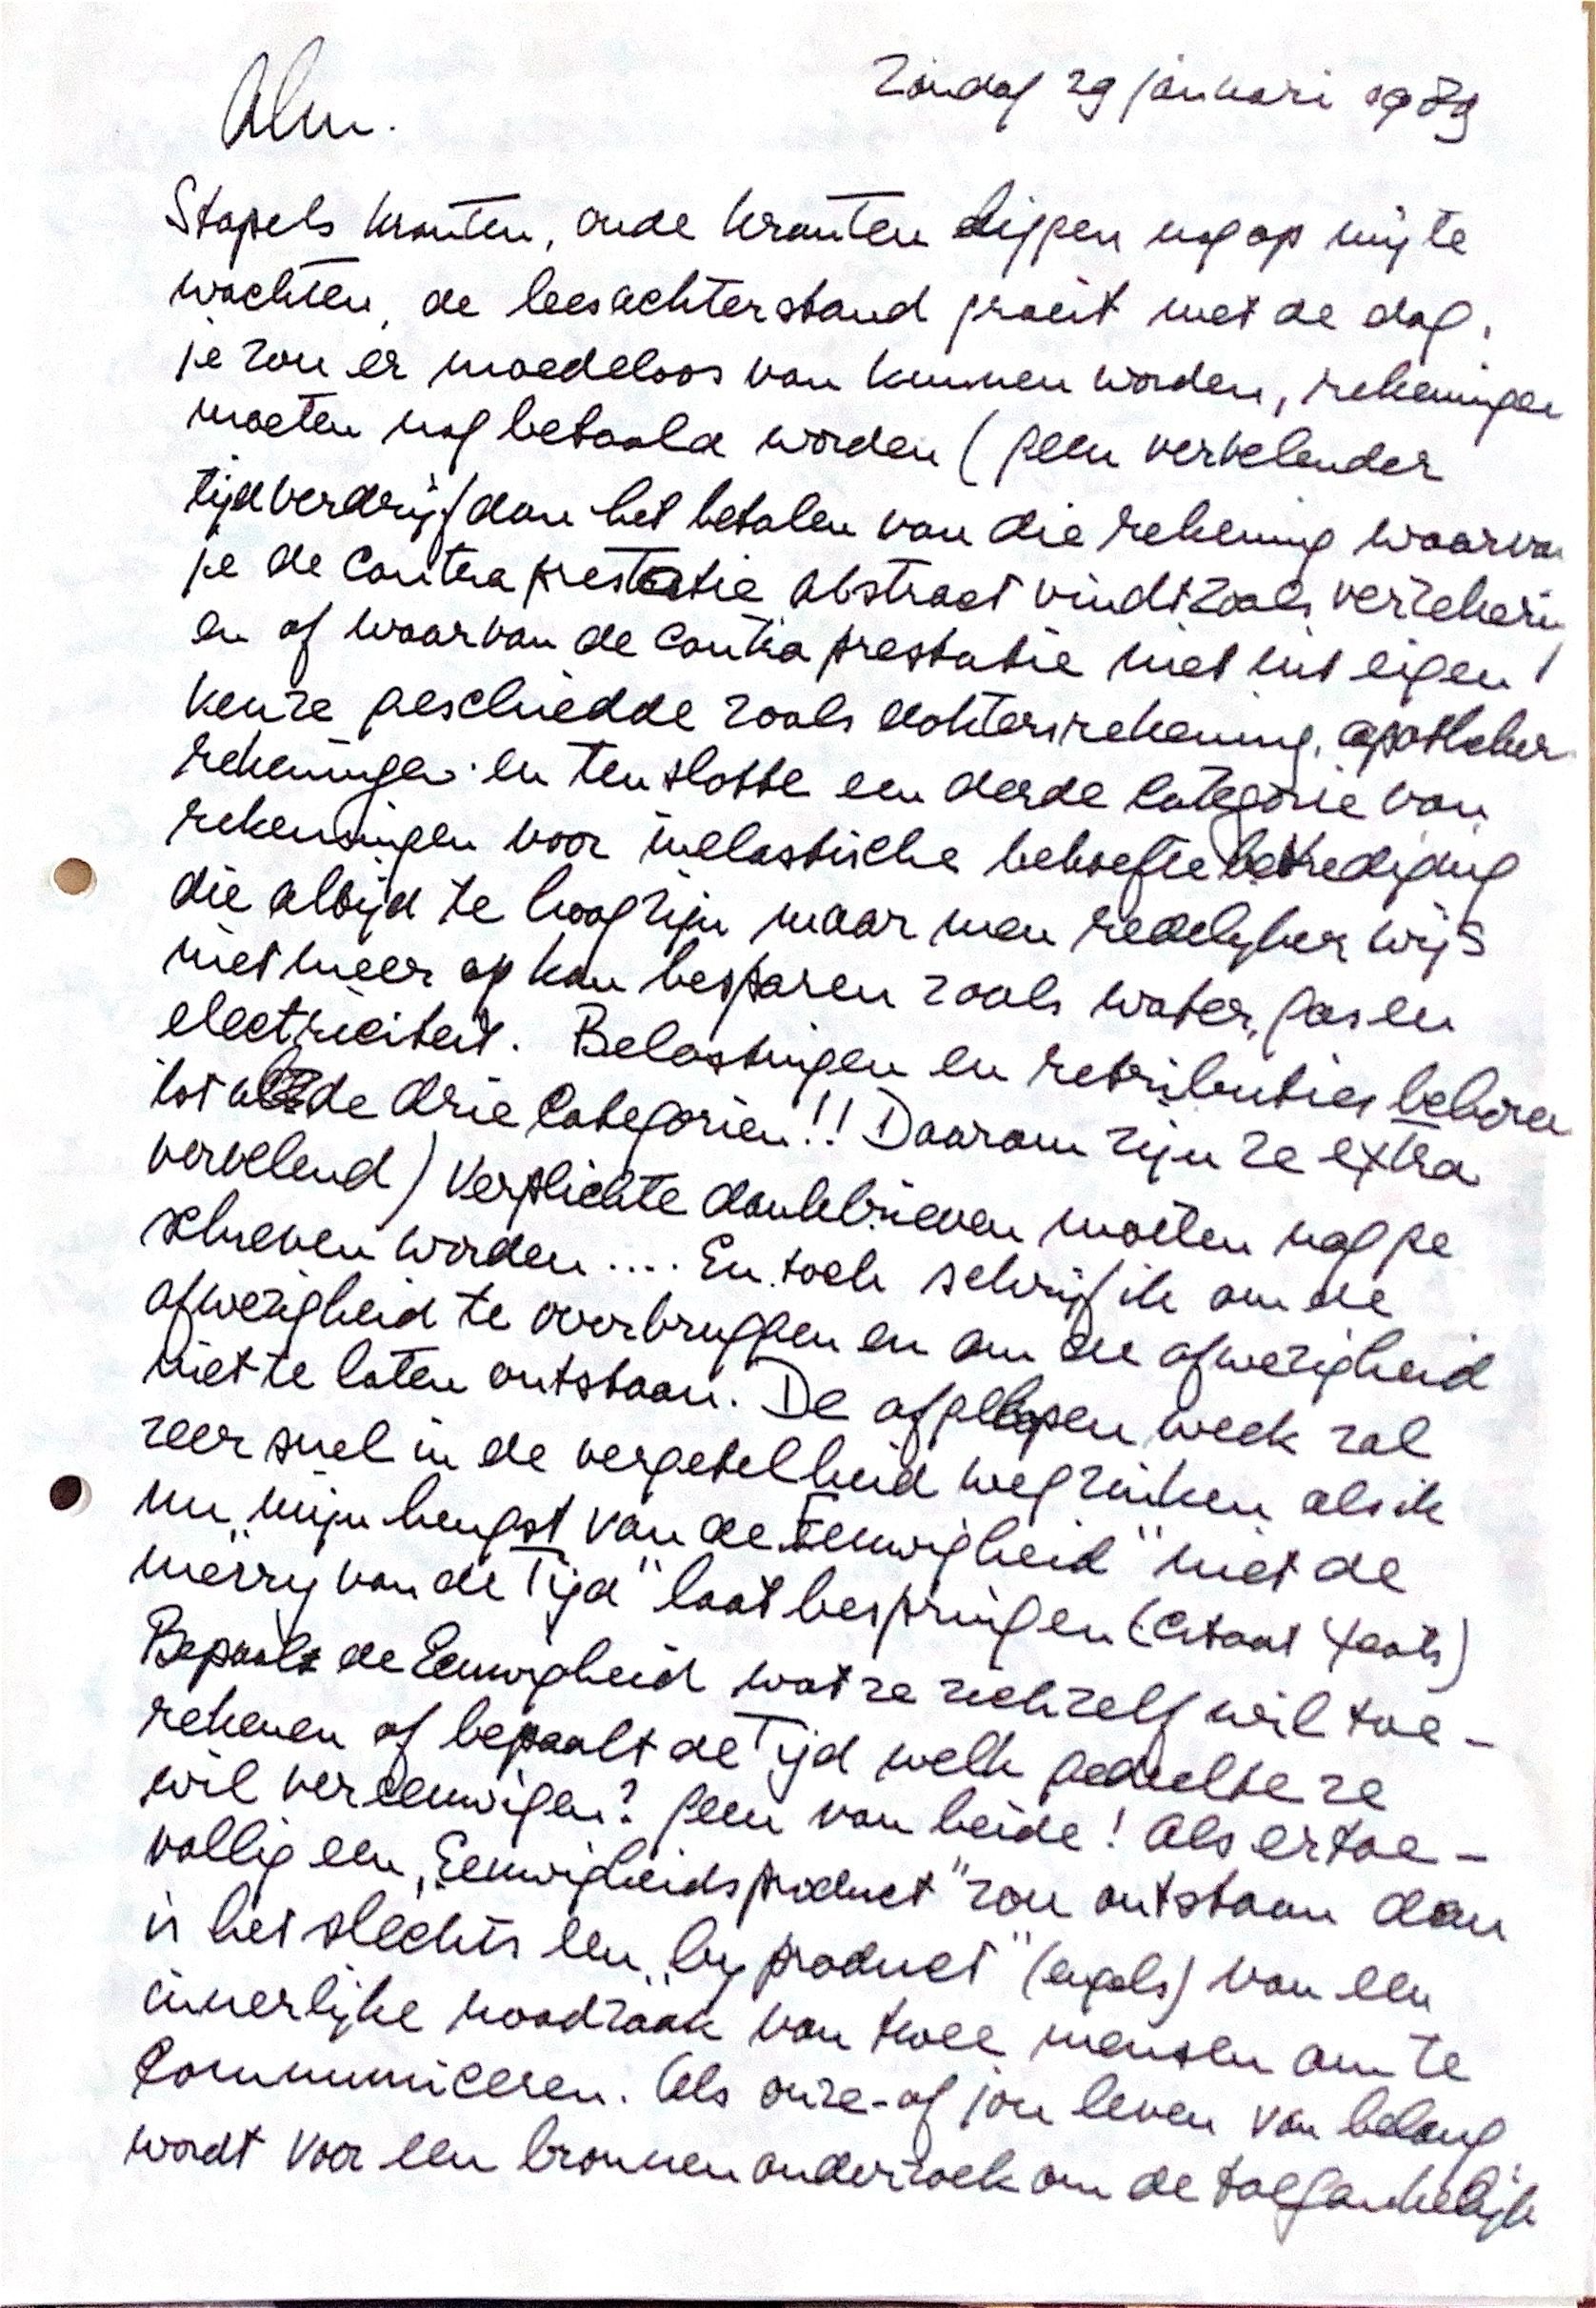 Zondag 29 januari 1989
Alm.
Stapels kranten, oude kranten liggen nog op mij te
wachten, de leesachterstand groeit met de dag,
je zou er moedeloos van kunnen worden, rekeningen
moeten nog betaald worden (geen vervelender
tijdverdrijf dan het betalen van die rekening waarva
je de contraprestatie abstract vindt zoals verzekerin
en of waarvan de contraprestatie niet uit eigen
keuze geschiedde zoals doktersrekening, apotheker
rekeningen en tenslotte een derde categorie van
rekeningen voor inelastische behoeftebevrediging
die altijd te hoog zijn maar men redelijkerwijs
niet meer op kan besparen zoals water, gas en
electriciteit. Belastingen en retributies behoren
tot alle de drie categoriën!! Daarom zijn ze extra
vervelend) Verplichte dankbrieven moeten nog ge
schreven worden .... En toch schrijf ik om de
afwezigheid te overbruggen en om die afwezigheid
niet te laten ontstaan. De afgelopen week zal
zeer snel in de vergetelheid wegzinken als ik
nu "mijn hengst van de Eeuwigheid" niet de
"merry van de Tijd" laat bespringen (citaat Yeats)
Bepaalt de Eeuwigheid wat ze zichzelf wil toe-
rekenen of bepaalt de Tijd welk gedeelte ze
wil vereeuwigen? geen van beide! Als er toe-
vallig een "Eeuwigheidsproduct" zou ontstaan dan
is het slechts een "by product" (engels) van een
innerlijke noodzaak van twee mensen om te
communiceren. Als onze- of jou leven van belang
wordt voor een bronnenonderzoek om de toegankelijk